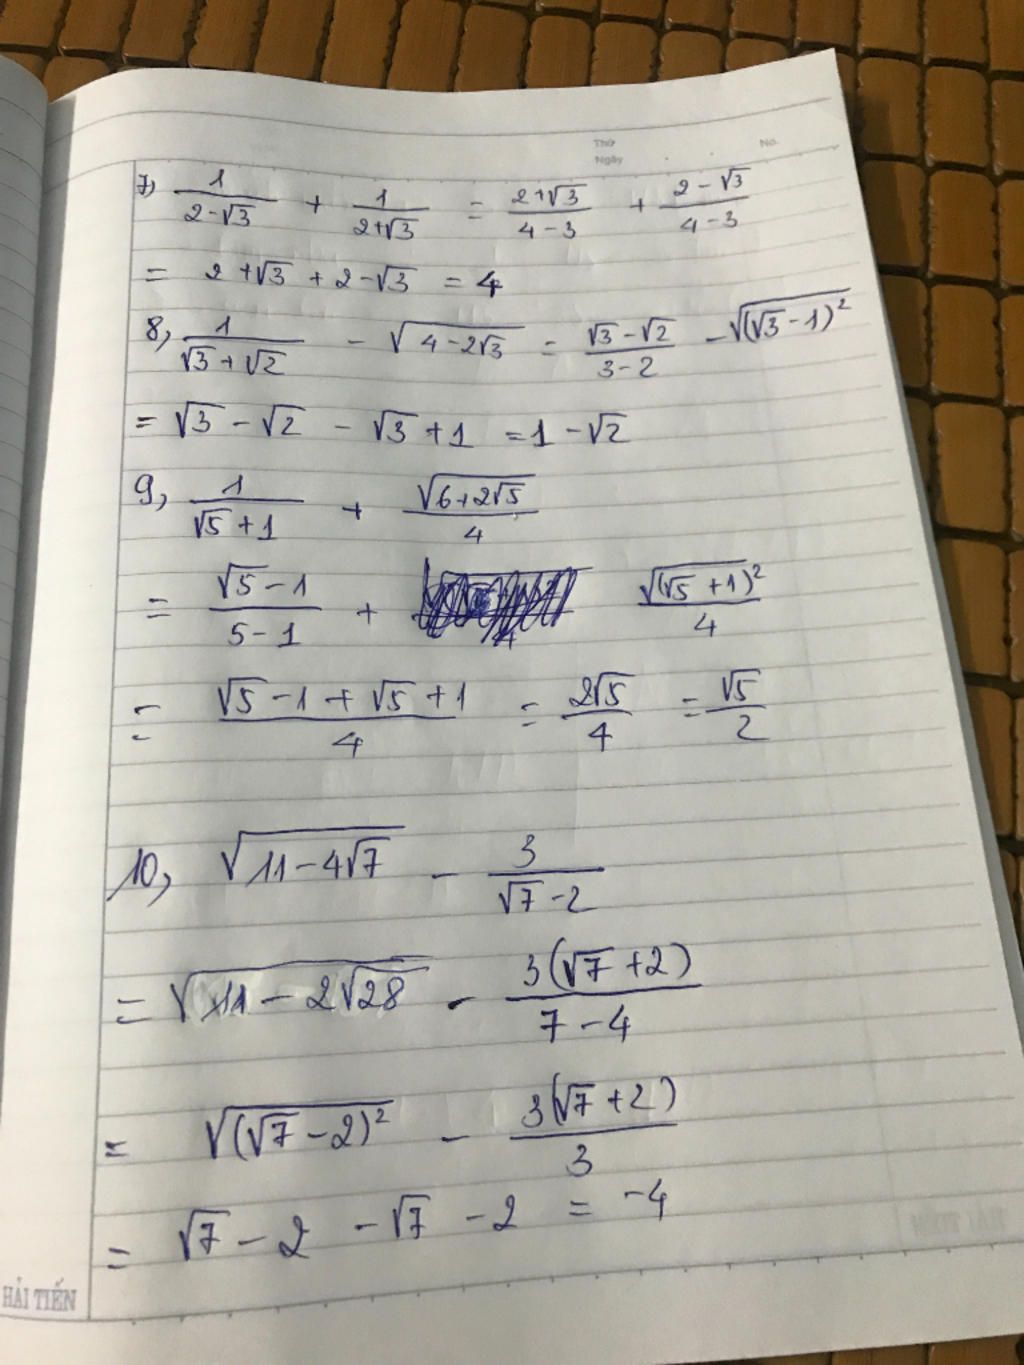 Thứ No.
Ngày
7) 1/(2-√3) + 1/(2+√3) = (2+√3)/(4-3) + (2-√3)/(4-3)
= 2+√3 + 2-√3 = 4
8, 1/(√3+√2) - √(4-2√3) = (√3-√2)/(3-2) - √((√3-1)²)
= √3 - √2 - √3 + 1 = 1 - √2
9, 1/(√5+1) + √(6+2√5)/4
= (√5-1)/(5-1) + √((√5+1)²)/4
= (√5-1+√5+1)/4 = 2√5/4 = √5/2
10, √(11-4√7) - 3/(√7-2)
= √(11-2√28) - 3(√7+2)/(7-4)
= √((√7-2)²) - 3(√7+2)/3
= √7 - 2 - √7 - 2 = -4
HẢI TIẾN